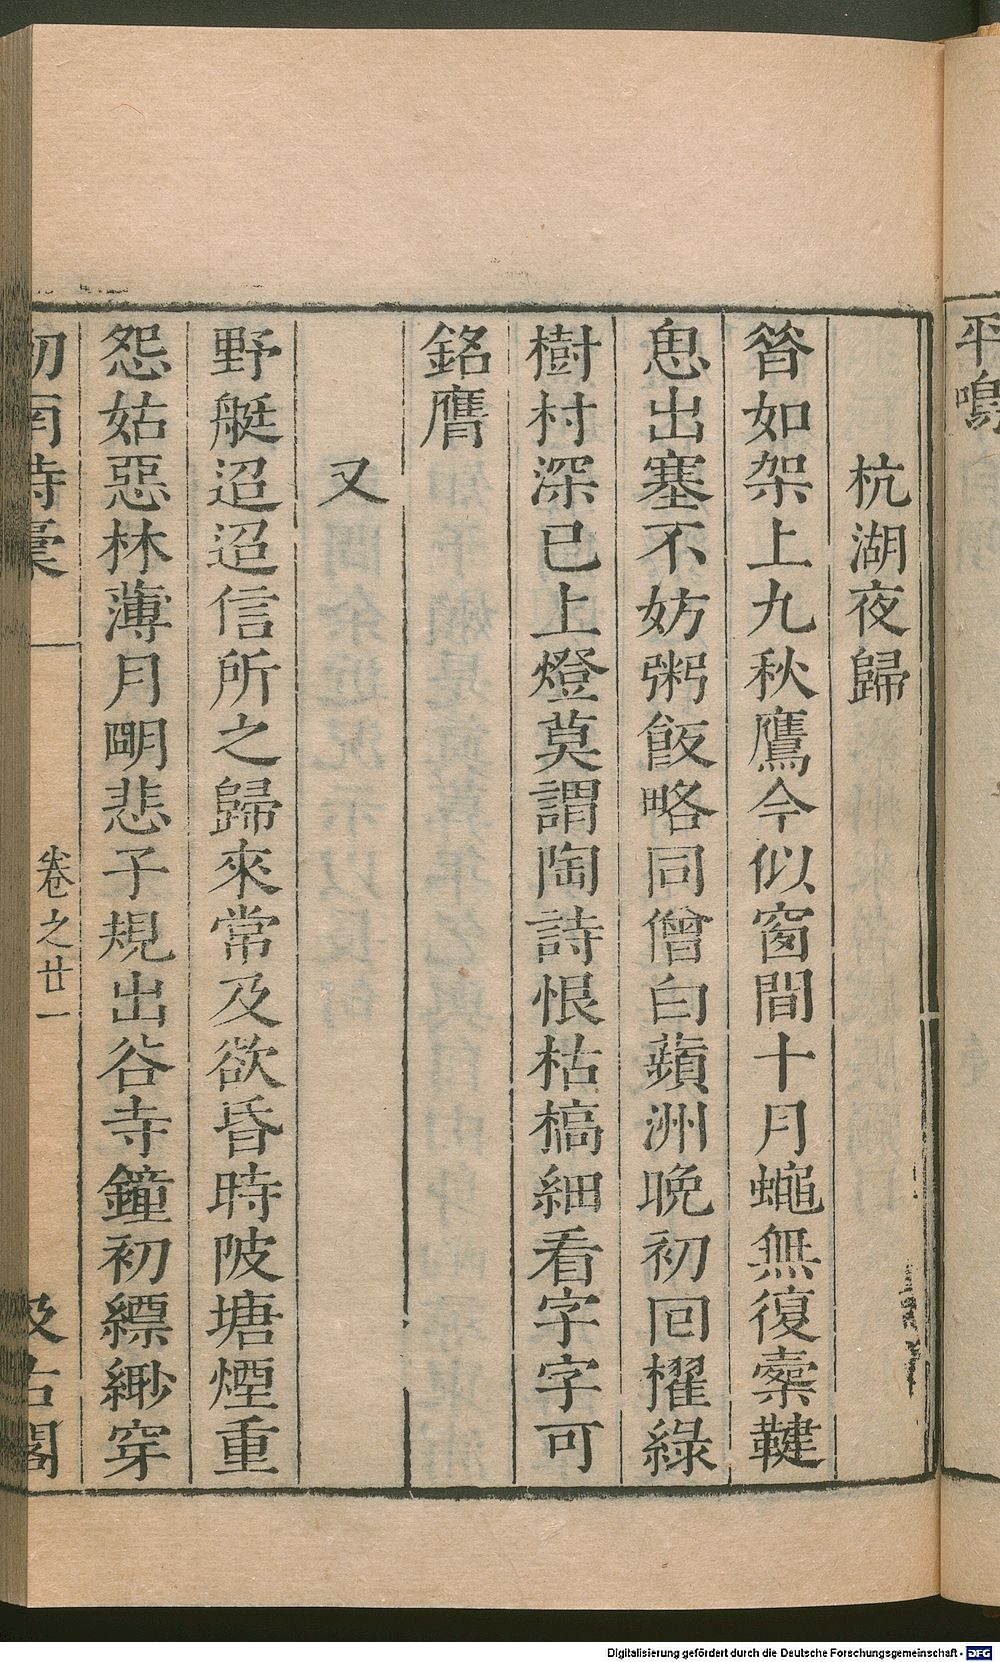 平鳴
杭湖夜歸
昝如架上九秋鷹今似窗間十月蠅無復櫜鞬
恖出塞不妨粥飯略同僧白蘋洲晚初回櫂綠
樹村深已上燈莫謂陶詩恨枯槁細看字字可
銘膺
又
野艇迢迢信所之歸來常及欲昏時陂塘煙重
怨姑惡林薄月朙悲子規出谷寺鐘初縹緲穿
劒南詩稾
卷之廿一
汲古閣
Digitalisierung gefördert durch die Deutsche Forschungsgemeinschaft - DFG